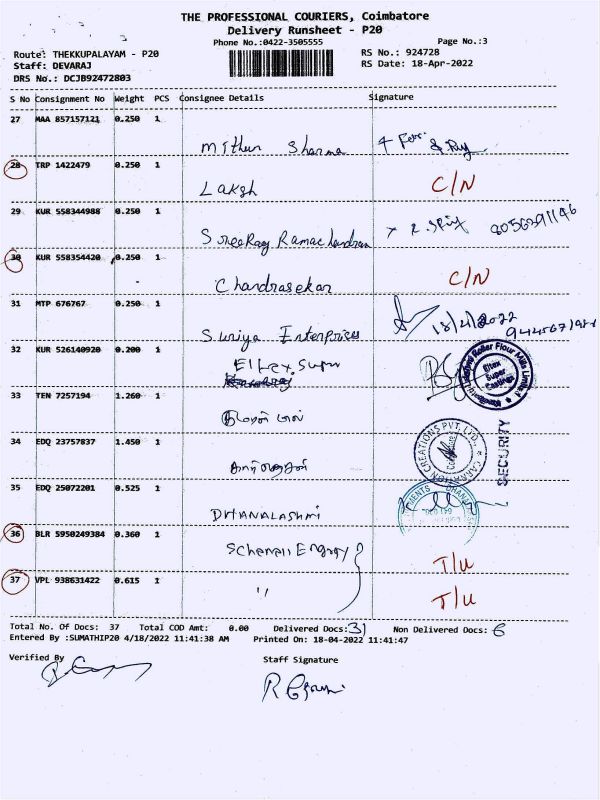 THE PROFESSIONAL COURIERS, Coimbatore
Delivery Runsheet - P20
Phone No.:0422-3505555
Page No.:3
Route: THEKKUPALAYAM - P20
RS No.: 924728
Staff: DEVARAJ
RS Date: 18-Apr-2022
DRS No.: DCJB92472803
S No Consignment No Weight PCS Consignee Details Signature
27 MAA 857157121 0.250 1
Mithun Sharma
28 TRP 1422479 0.250 1
Laksh C/N
29 KUR 558344988 0.250 1
SreeRag Ramachandran
30 KUR 558354420 0.250 1
Chandrasekar C/N
31 MTP 676767 0.250 1
Suriya Enterprises 18/4/2022
32 KUR 526140920 0.200 1
Eltex Super
33 TEN 7257194 1.260 1
34 EDQ 23757837 1.450 1
SECURITY
35 EDQ 25072201 0.525 1
DHANALASHMI
36 BLR 5950249384 0.360 1
T/U
37 VPL 938631422 0.615 1
" T/U
Total No. Of Docs: 37 Total COD Amt: 0.00 Delivered Docs: 31 Non Delivered Docs: 6
Entered By :SUMATHIP20 4/18/2022 11:41:38 AM Printed On: 18-04-2022 11:41:47
Verified By
Staff Signature